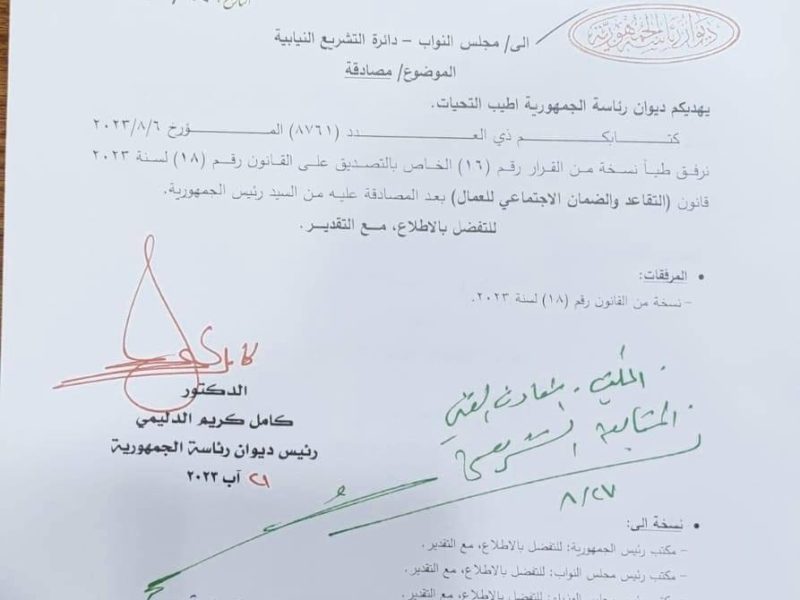 ديوان رئاسة الجمهورية
الى/ مجلس النواب – دائرة التشريع النيابية
الموضوع/ مصادقة
يهديكم ديوان رئاسة الجمهورية اطيب التحيات.
كتابكم ذي العدد (٨٧٦١) المؤرخ ٢٠٢٣/٨/٦
نرفق طياً نسخة من القرار رقم (١٦) الخاص بالتصديق على القانون رقم (١٨) لسنة ٢٠٢٣
قانون (التقاعد والضمان الاجتماعي للعمال) بعد المصادقة عليه من السيد رئيس الجمهورية.
للتفضل بالاطلاع، مع التقدير.
• المرفقات:
– نسخة من القانون رقم (١٨) لسنة ٢٠٢٣.
الدكتور
كامل كريم الدليمي
رئيس ديوان رئاسة الجمهورية
آب ٢٠٢٣
المتابعة
٨/٢٧
• نسخة الى:
– مكتب رئيس الجمهورية: للتفضل بالاطلاع، مع التقدير.
– مكتب رئيس مجلس النواب: للتفضل بالاطلاع، مع التقدير.
– مكتب رئيس مجلس الوزراء: للتفضل بالاطلاع، مع التقدير.